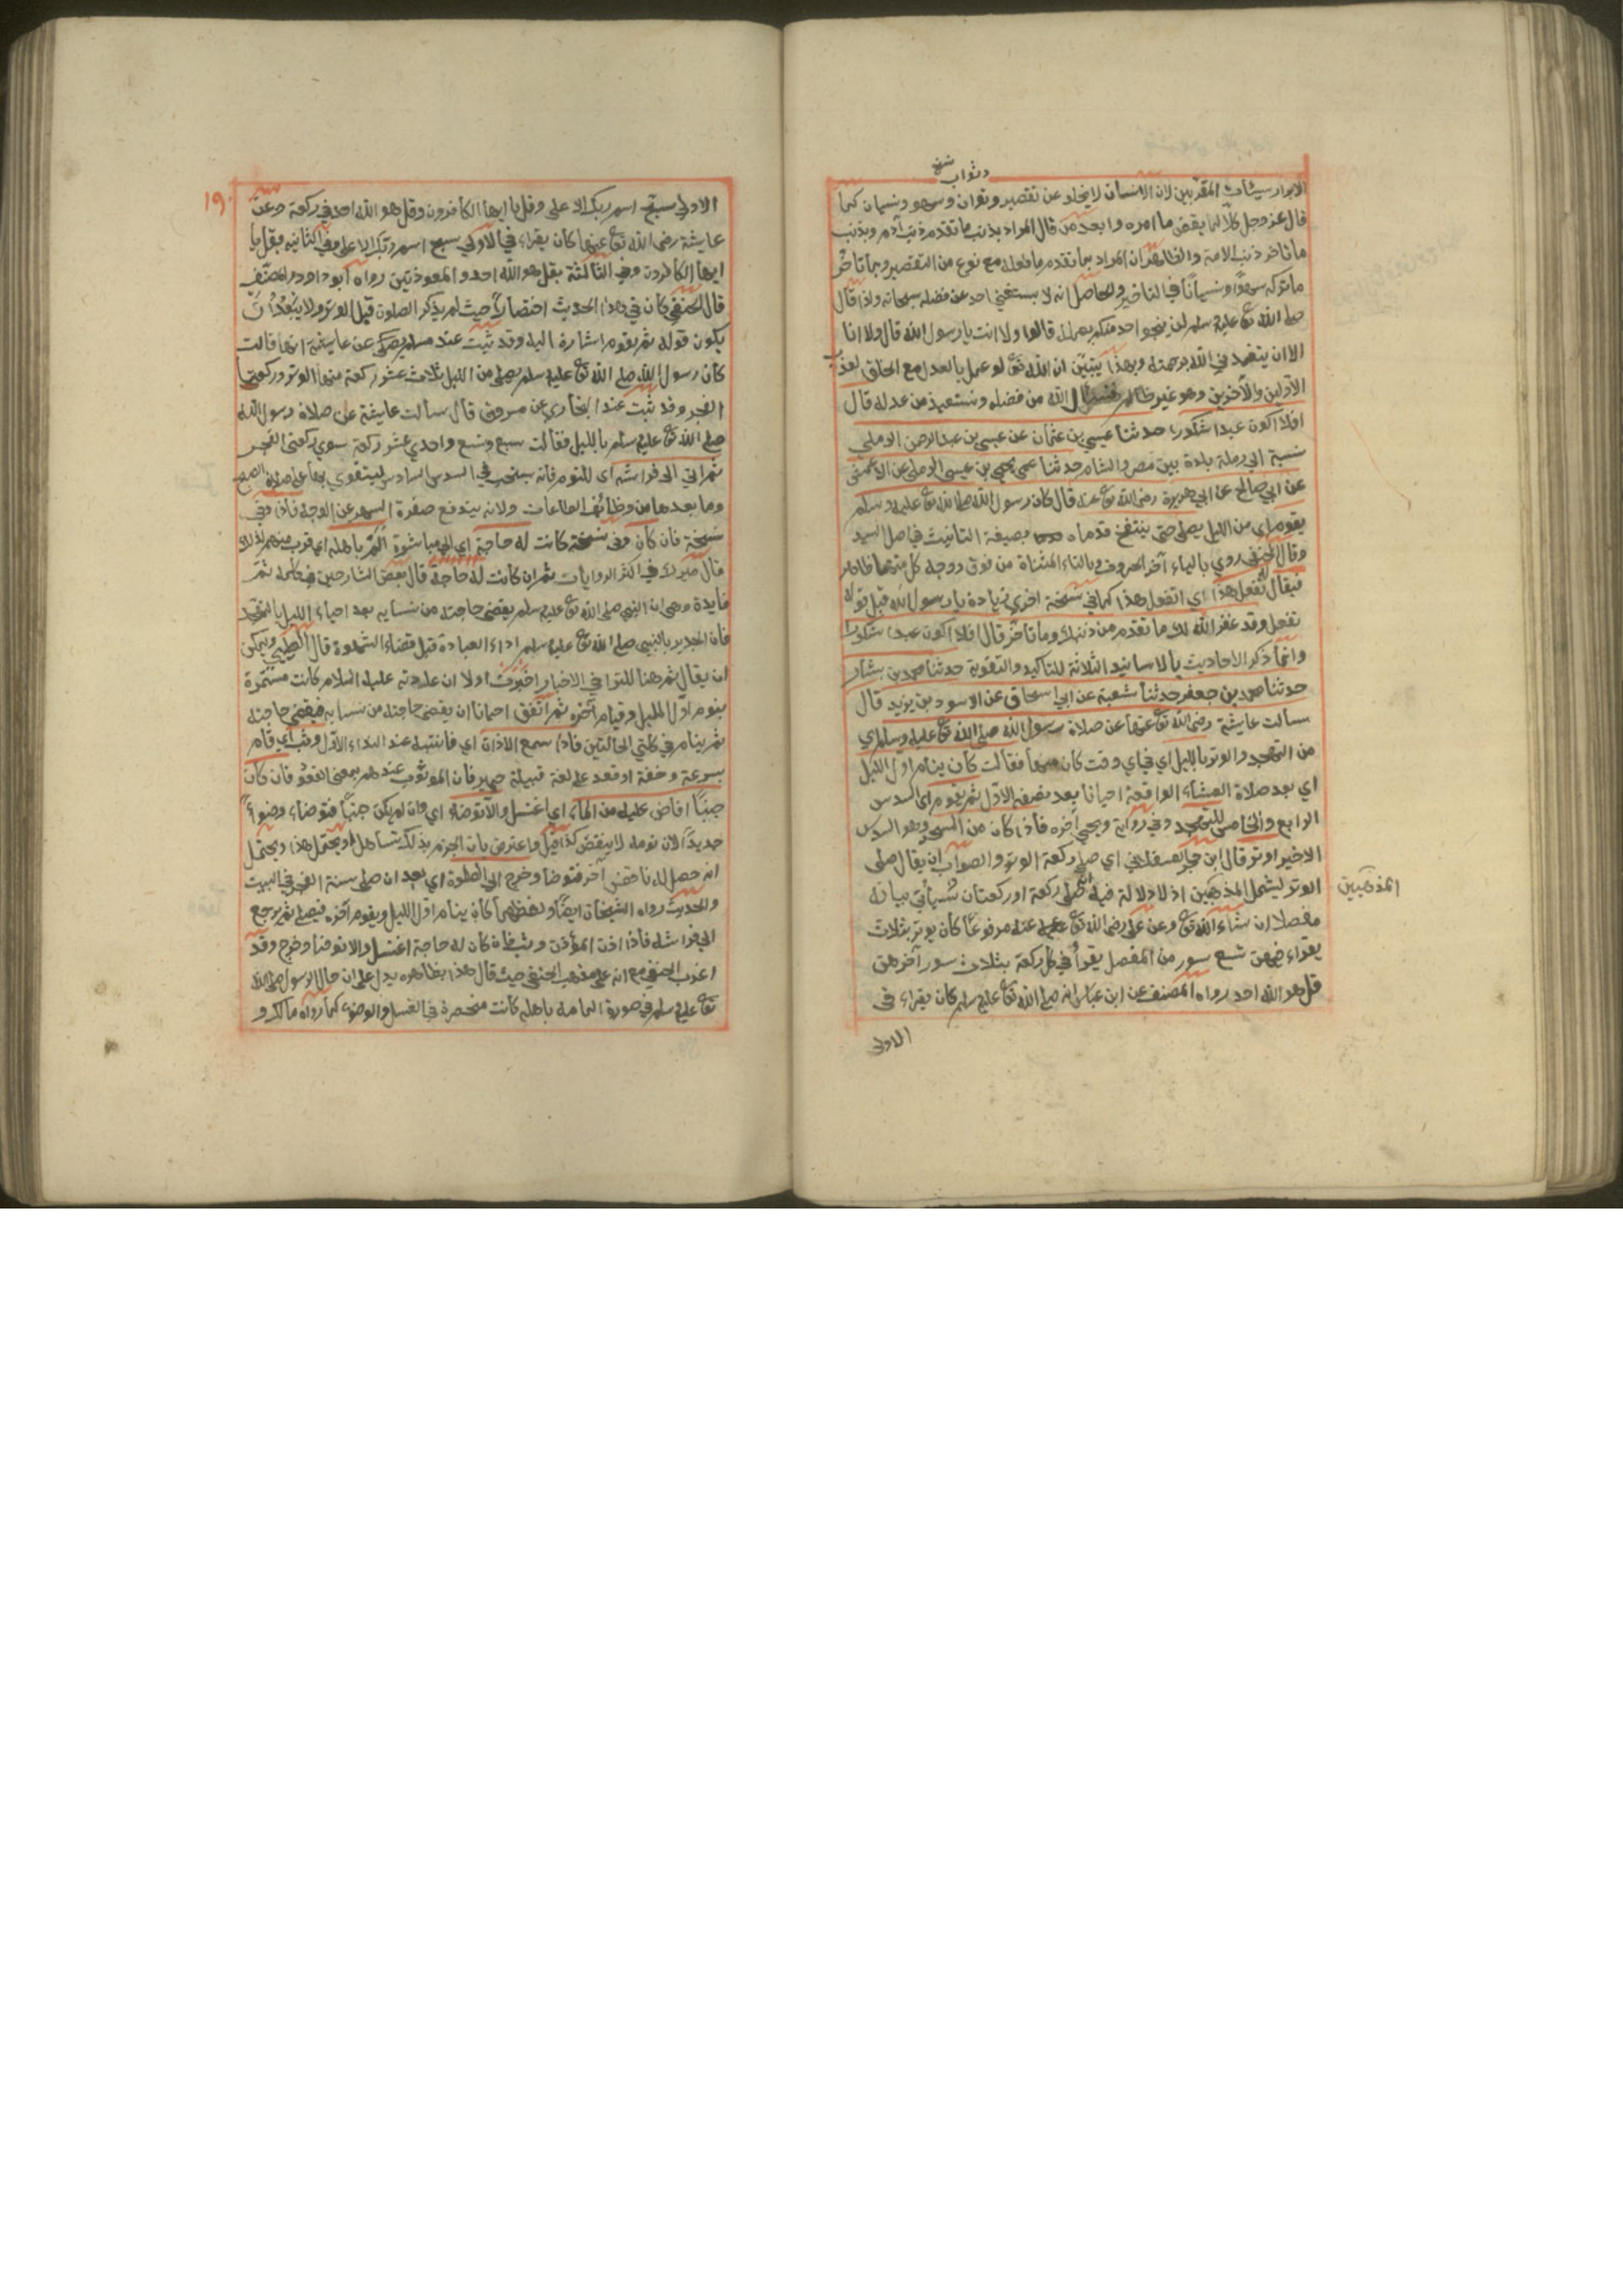 وثواب نسخ
الابرار سيئات المقربين لان الانسان لايخلو عن تقصير وتوان وسهو ونسيان كما
قال عز وجل كلا لما يقض ما امره وابعد من قال المراد بذنب ما تقدم ذنب آدم وبذنب
ما تاخر ذنب الامة والظاهر ان المراد بما تقدم ما فعله مع نوع من التقصير وبما تاخر
ما تركه سهوا ونسيانا في التاخير والحاصل انه لا يستغني احد عن فضله سبحانه ولذا قال
صلى الله تع عليه وسلم لن ينجو احد منكم بعمله قالوا ولا انت يا رسول الله قال ولا انا
الا ان يتغمدني الله برحمته وبهذا يتبين ان الله تع لو عمل بالعدل مع الخلق لعذب
الاولين والآخرين وهو غير ظالم فنسال الله من فضله ونستعيذ من عدله قال
افلا اكون عبدا شكورا حدثنا عيسى بن عثمان عن عيسى بن عبد الرحمن الرملي
نسبة الى رملة بلدة بين مصر والشام حدثنا عمي يحيى بن عيسى الرملي عن الاعمش
عن ابي صالح عن ابي هريرة رضى الله تع عنه قال كان رسول الله صلى الله تع عليه وسلم
يقوم اي من الليل يصلى حتى ينتفخ قدماه بصيغة التانيث في اصل السيد
وقال الحنفي روي بالياء آخر الحروف وبالتاء المثناة من فوق ووجه كل منهما ظاهر
فيقال له تفعل هذا اي اتفعل هذا كما في نسخة اخرى زيادة يا رسول الله قبل قوله
تفعل وقد غفر الله لك ما تقدم من ذنبك وما تاخر قال افلا اكون عبدا شكورا
وانما ذكر الاحاديث بالاسانيد الثلاثة للتاكيد والتقوية حدثنا محمد بن بشار
حدثنا محمد بن جعفر حدثنا شعبة عن ابي اسحاق عن الاسود بن يزيد قال
سالت عايشة رضى الله تع عنها عن صلاة رسول الله صلى الله تع عليه وسلم اي
من التهجد والوتر بالليل اي في اي وقت كان فقالت كان ينام اول الليل
اي بعد صلاة العشاء الواقعة احيانا بعد نصفه الاول ثم يقوم اي السدس
الرابع والخامس للتهجد وفي رواية ويحيي آخره فاذا كان من السحر وهو السدس
الاخير اوتر قال ابن حجر العسقلاني اي صلى ركعة الوتر والصواب ان يقال صلى
الوتر ليشمل المذهبين اذ لا دلالة فيه انه صلى ركعة او ركعتان سياتي بيانه
المذهبين
مفصلا ان شاء الله تع وعن علي رضى الله تع عنه مرفوعا كان يوتر بثلاث
يقراء فيهن تسع سور من المفصل يقرأ في كل ركعة بثلاث سور آخرهن
قل هو الله احد رواه المصنف عن ابن عباس انه صلى الله تع عليه وسلم كان يقراء في
الاولى
١٩٠
الاولى سبح اسم ربك الاعلى وقل يا ايها الكافرون وقل هو الله احد في ركعة وعن
عايشة رضى الله تع عنها كان يقراء في الاولى سبح اسم ربك الاعلى وفي الثانيه بقل يا
ايها الكافرون وفي الثالثة بقل هو الله احد والمعوذتين رواه ابو داود والمصنف
قال الحنفي كان في هذا الحديث اختصارا حيث لم يذكر الصلوة قبل الوتر ولا يبعد ان
يكون قوله ثم يقوم اشارة اليه وقد ثبت عند مسلم عن عايشة انها قالت
كان رسول الله صلى الله تع عليه وسلم يصلى من الليل ثلاث عشر ركعة منها الوتر وركعتا
الفجر وقد ثبت عند البخاري عن مسروق قال سالت عايشة عن صلاة رسول الله
صلى الله تع عليه وسلم بالليل فقالت سبع وتسع واحدي عشر ركعة سوي ركعتى الفجر
ثم اتى الى فراشه اى للنوم فانه يستحب في السدس السادس ليتقوي بها على صلاة الصبح
وما بعدها من وظائف الطاعات ولانه يندفع صفرة السهر عن الوجه فان وفي
نسخة فان كان وفى نسخة كانت له حاجة اي الى مباشرة الم باهله اي قرب منهم لذلك
قال ميرك في اكثر الروايات ثم ان كانت له حاجة قال بعض الشارحين في كلمة ثم
فايدة وهي ان النبي صلى الله تع عليه وسلم يقضى حاجته من نسايه بعد احياء الليل بالتهجد
فان الجدير بالنبي صلى الله تع عليه وسلم اداء العبادة قبل قضاء الشهوة قال الطيبي ويمكن
ان يقال ثم هنا للتراخي الاخبار اخبرت اولا ان عادته عليه السلام كانت مستمرة
بنوم اول الليل وقيام آخره ثم اتفق احيانا ان يقضى حاجته من نسايه فيقضى حاجته
ثم ينام في كلتي الحالتين فاذا سمع الاذان اي فانتبه عند النداء الاول وثب اي قام
بسرعة وخفة او قعد على لغة قبيلة حمير فان الوثوب عندهم بمعنى القعود فان كان
جنبا افاض عليه من الماء اي اغتسل والا توضاء اي وان لم يكن جنبا فتوضاء وضوءا
جديدا لان نومه لا ينقض كذا قيل واعترض بان الجزم بذلك تساهل او يحتمل هذا ويحتمل
انه حصل له ناقض آخر فتوضا وخرج الى الصلوة اي بعد ان صلى سنة الفجر في البيت
والحديث رواه الشيخان ايضا ولفظهما كان ينام اول الليل ويقوم آخره فيصلى ثم يرجع
الى فراشه فاذا اذن المؤذن وثب فان كان له حاجة اغتسل والا توضا وخرج وقد
اغرب الحنفي مع انه على مذهب الحنفى حيث قال هذا بظاهره يدل على ان حال الرسول صلى الله
تع عليه وسلم في صورة المامه باهله كانت منحصرة في الغسل والوضوء كما رواه مالك و